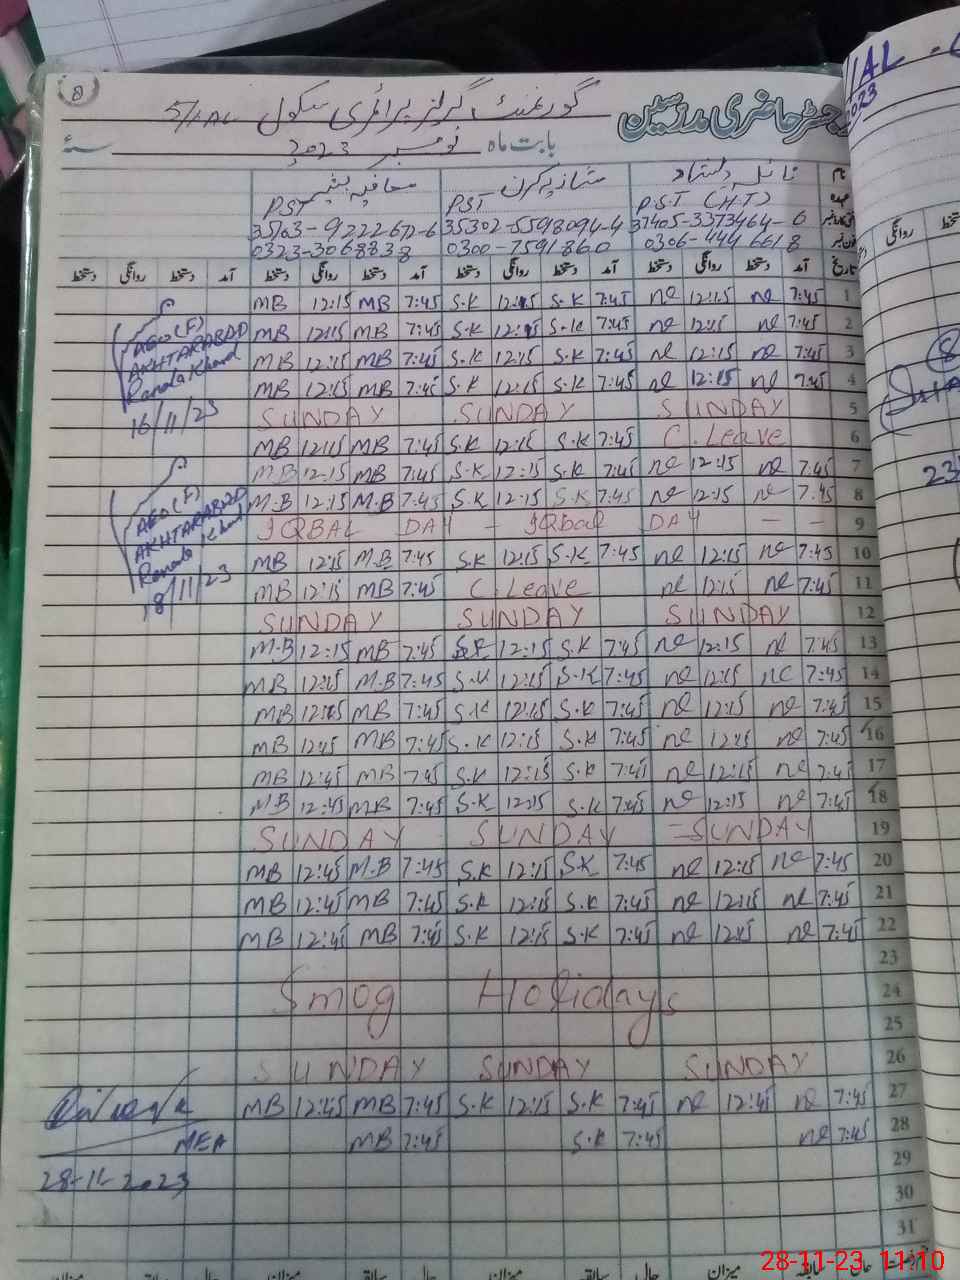 8
رجسٹر حاضری مدرسین
گورنمنٹ گرلز پرائمری سکول 5/1AL
بابت ماہ نومبر 2023 سنہ
نام نائلہ دلشاد
عہدہ P.S.T (H.T) PST PST
37405-3373464-6 35302-5598094-4 35103-9222672-6
0306-4446618 0300-7591860 0323-3068838
تاریخ آمد دستخط روانگی دستخط آمد دستخط روانگی دستخط آمد دستخط روانگی دستخط آمد دستخط روانگی دستخط
1 7:45 ne 12:15 ne 7:45 S.K 12:15 S.K 7:45 MB 12:15 MB
2 7:45 ne 12:15 ne 7:45 S.K 12:15 S.K 7:45 MB 12:15 MB
3 7:45 ne 12:15 ne 7:45 S.K 12:15 S.K 7:45 MB 12:15 MB
4 7:45 ne 12:15 ne 7:45 S.K 12:15 S.K 7:45 MB 12:15 MB
5 SUNDAY SUNDAY SUNDAY
6 C.Leave 7:45 S.K 12:15 S.K 7:45 MB 12:15 MB
7 7:45 ne 12:15 ne 7:45 S.K 12:15 S.K 7:45 MB 12:15 M.B
8 7:45 ne 12:15 ne 7:45 S.K 12:15 S.K 7:45 M.B 12:15 M.B
9 IQBAL DAY - IQbal DAY - -
10 7:45 ne 12:15 ne 7:45 S.K 12:15 S.K 7:45 M.B 12:15 MB
11 7:45 ne 12:15 ne C.Leave 7:45 MB 12:15 MB
12 SUNDAY SUNDAY SUNDAY
13 7:45 ne 12:15 ne 7:45 S.K 12:15 S.K 7:45 MB 12:15 M.B
14 7:45 ne 12:15 ne 7:45 S.K 12:15 S.K 7:45 M.B 12:15 MB
15 7:45 ne 12:15 ne 7:45 S.K 12:15 S.K 7:45 MB 12:15 MB
16 7:45 ne 12:15 ne 7:45 S.K 12:15 S.K 7:45 MB 12:45 MB
17 7:45 ne 12:15 ne 7:45 S.K 12:15 S.K 7:45 MB 12:45 MB
18 7:45 ne 12:15 ne 7:45 S.K 12:15 S.K 7:45 MB 12:45 MB
19 SUNDAY SUNDAY =SUNDAY
20 7:45 ne 12:15 ne 7:45 S.K 12:15 S.K 7:45 M.B 12:45 MB
21 7:45 ne 12:15 ne 7:45 S.K 12:15 S.K 7:45 MB 12:45 MB
22 7:45 ne 12:15 ne 7:45 S.K 12:15 S.K 7:45 MB 12:45 MB
23
24 Smog Holidays
25
26 SUNDAY SUNDAY SUNDAY
27 7:45 ne 12:45 ne 7:45 S.K 12:15 S.K 7:45 MB 12:45 MB
28 7:45 ne 7:45 S.K 7:45 MB
29
30
31
AEO(F)
AKHTARABAD
Renala Khurd
16/11/23
AEO(F)
AKHTARABAD
Renala Khurd
18/11/23
MEA
28-11-2023
میزان سابقہ حال میزان سابقہ حال میزان
1AL
2023
روانگی
8
23
28-11-23, 11:10